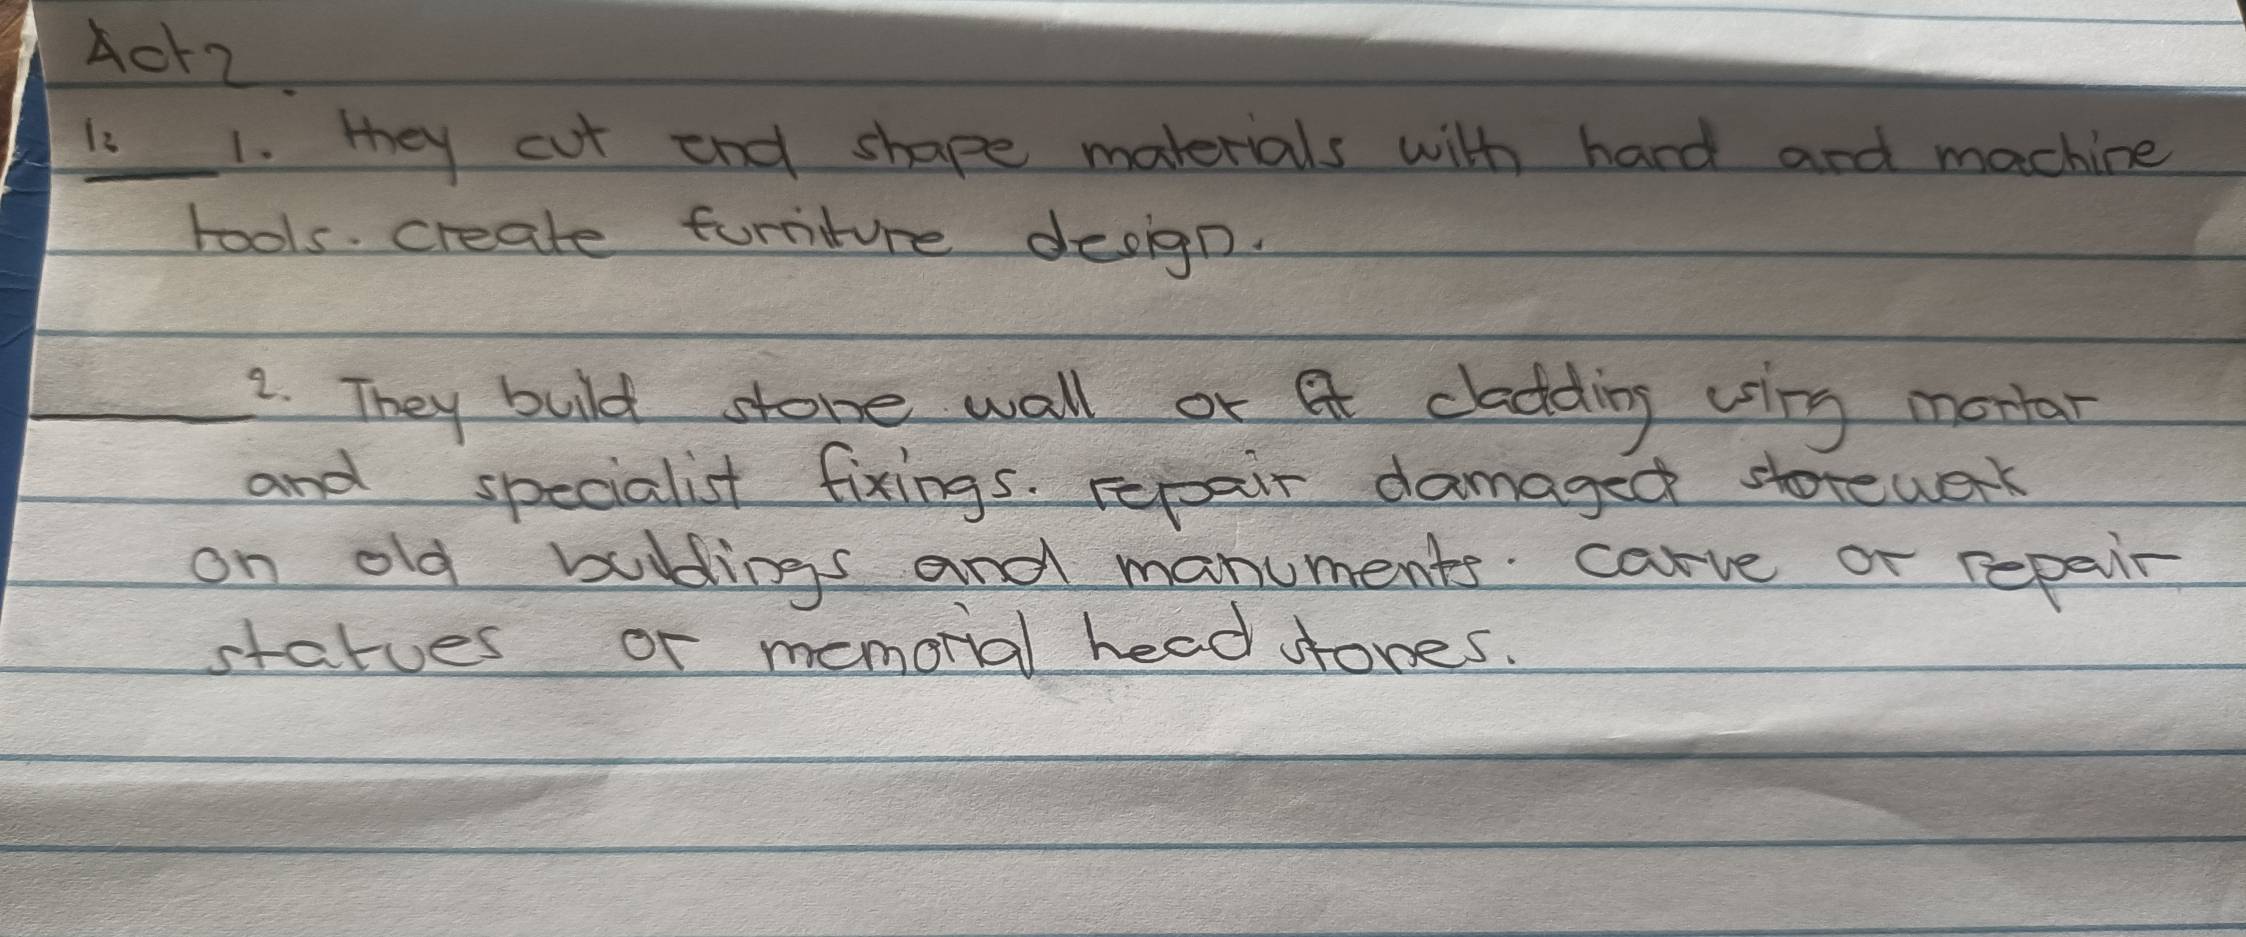 Act 2
1: ___ 1. They cut and shape materials with hand and machine
tools. create furniture design.
___ 2. They build stone wall or fit cladding using mortar
and specialist fixings. repair damaged stonework
on old buildings and manuments. Carve or repair
statues or memorial head stones.